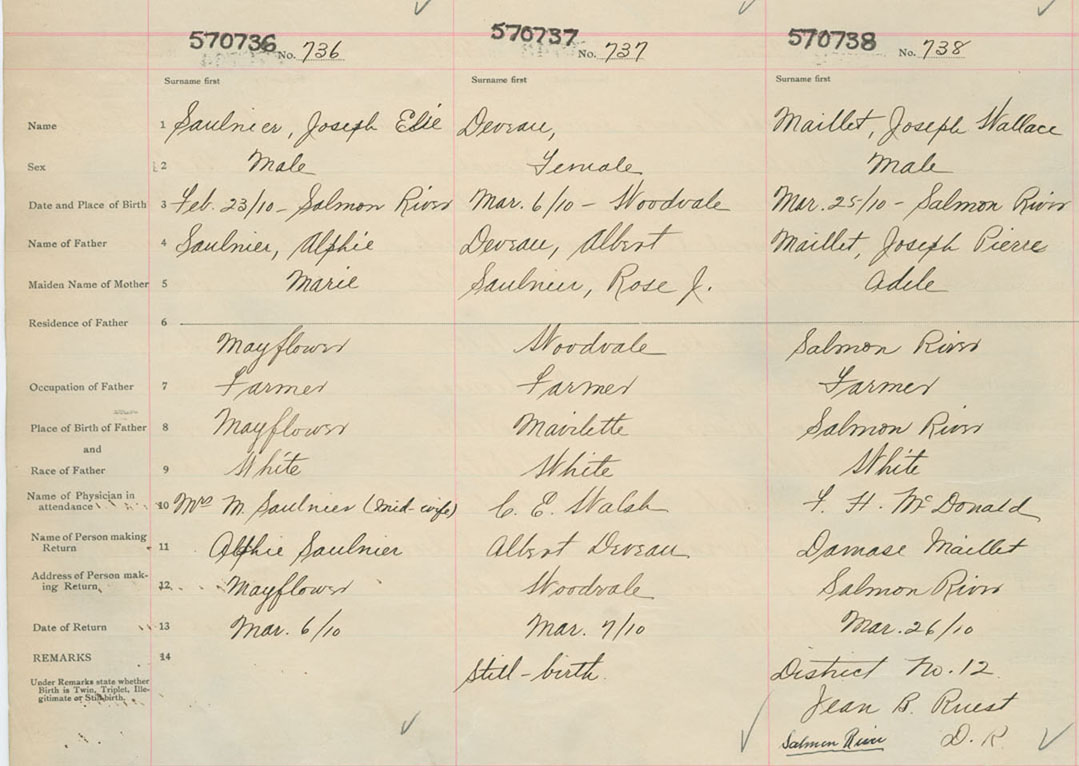 570736 No. 736 570737 No. 737 570738 No. 738
Surname first Surname first Surname first
Name 1 Saulnier, Joseph Elie Deveau, Maillet, Joseph Wallace
Sex 2 Male Female Male
Date and Place of Birth 3 Feb. 23/10 - Salmon River Mar. 6/10 - Woodvale Mar. 25/10 - Salmon River
Name of Father 4 Saulnier, Alphie Deveau, Albert Maillet, Joseph Pierre
Maiden Name of Mother 5 Marie Saulnier, Rose J. Adele
Residence of Father 6
Mayflower Woodvale Salmon River
Occupation of Father 7 Farmer Farmer Farmer
Place of Birth of Father 8 Mayflower Mavilette Salmon River
and
Race of Father 9 White White White
Name of Physician in
attendance 10 Mrs M. Saulnier (mid-wife) C. E. Walsh F. H. McDonald
Name of Person making
Return 11 Alphie Saulnier Albert Deveau Damase Maillet
Address of Person mak-
ing Return 12 Mayflower Woodvale Salmon River
Date of Return 13 Mar. 6/10 Mar. 7/10 Mar. 26/10
REMARKS 14
Still-birth District No. 12
Under Remarks state whether
Birth is Twin, Triplet, Ille-
gitimate or Stillbirth.
Jean B. Ruest
Salmon River D. R.